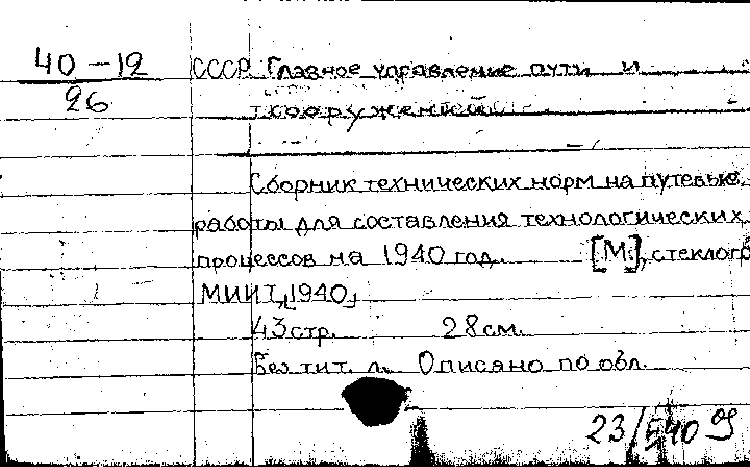 40-12
26
СССР. Главное управление пути и
сооружений
Сборник технических норм на путевые
работы для составления технологических
процессов на 1940 год. [М.], стеклогр
МИИТ, [1940]
43 стр. 28 см.
Без тит. л. Описано по обл.
23/